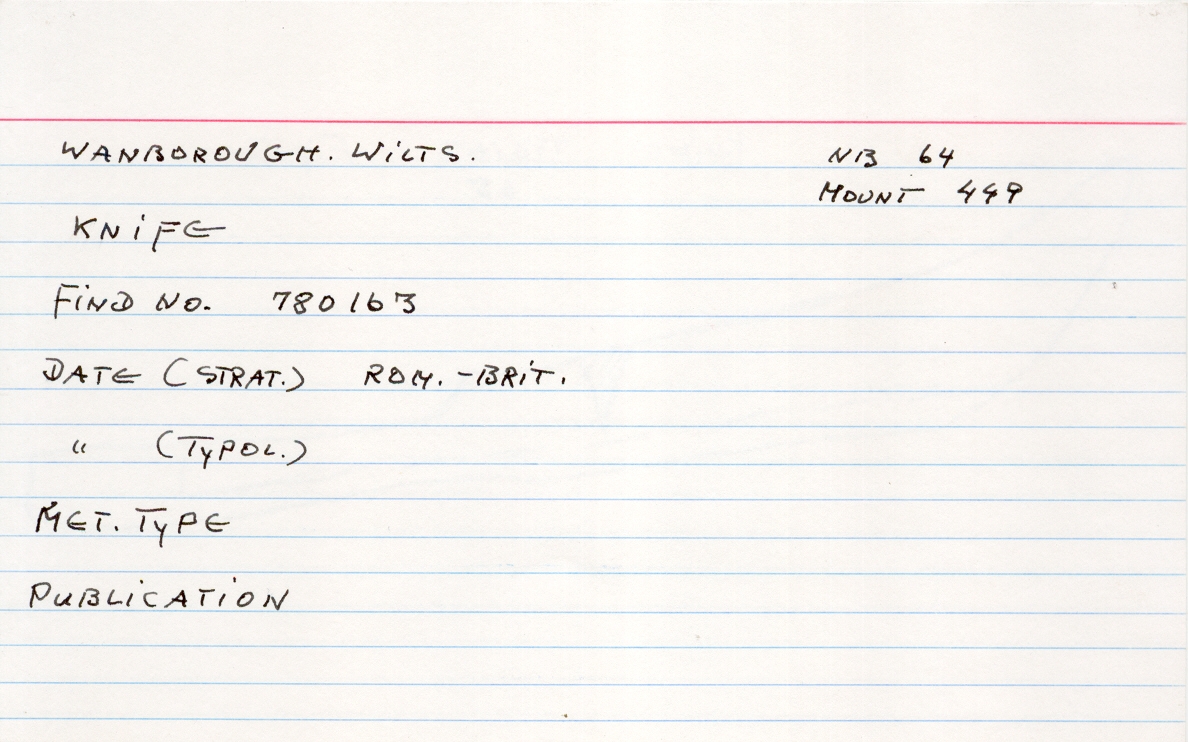 WANBOROUGH. WILTS.
NB 64
MOUNT 449
KNIFE
FIND NO. 780163
DATE (STRAT.) ROM.-BRIT.
" (TYPOL.)
MET. TYPE
PUBLICATION